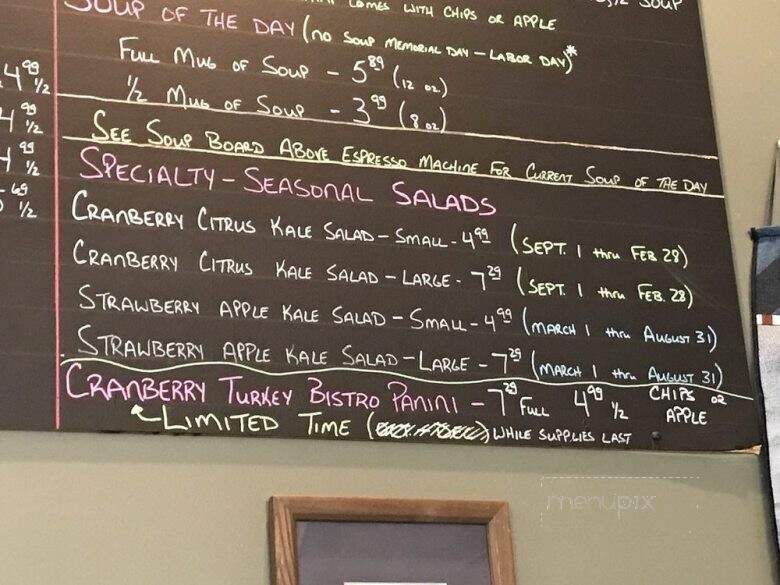 COMES WITH CHIPS OR APPLE
SOUP
SOUP OF THE DAY (NO SOUP MEMORIAL DAY - LABOR DAY)*
FULL MUG OF SOUP - 5 89 (12 oz.)
1/2 MUG OF SOUP - 3 99 (8 oz)
4 99 1/2
4 99 1/2
4 99 1/2
69 1/2
SEE SOUP BOARD ABOVE ESPRESSO MACHINE FOR CURRENT SOUP OF THE DAY
SPECIALTY - SEASONAL SALADS
CRANBERRY CITRUS KALE SALAD - SMALL - 4 99 (SEPT. 1 thru FEB 28)
CRANBERRY CITRUS KALE SALAD - LARGE - 7 29 (SEPT. 1 thru FEB. 28)
STRAWBERRY APPLE KALE SALAD - SMALL - 4 99 (MARCH 1 thru AUGUST 31)
STRAWBERRY APPLE KALE SALAD - LARGE - 7 29 (MARCH 1 thru AUGUST 31)
CRANBERRY TURKEY BISTRO PANINI - 7 29 FULL 4 99 1/2 CHIPS OR APPLE
LIMITED TIME WHILE SUPPLIES LAST
menupix